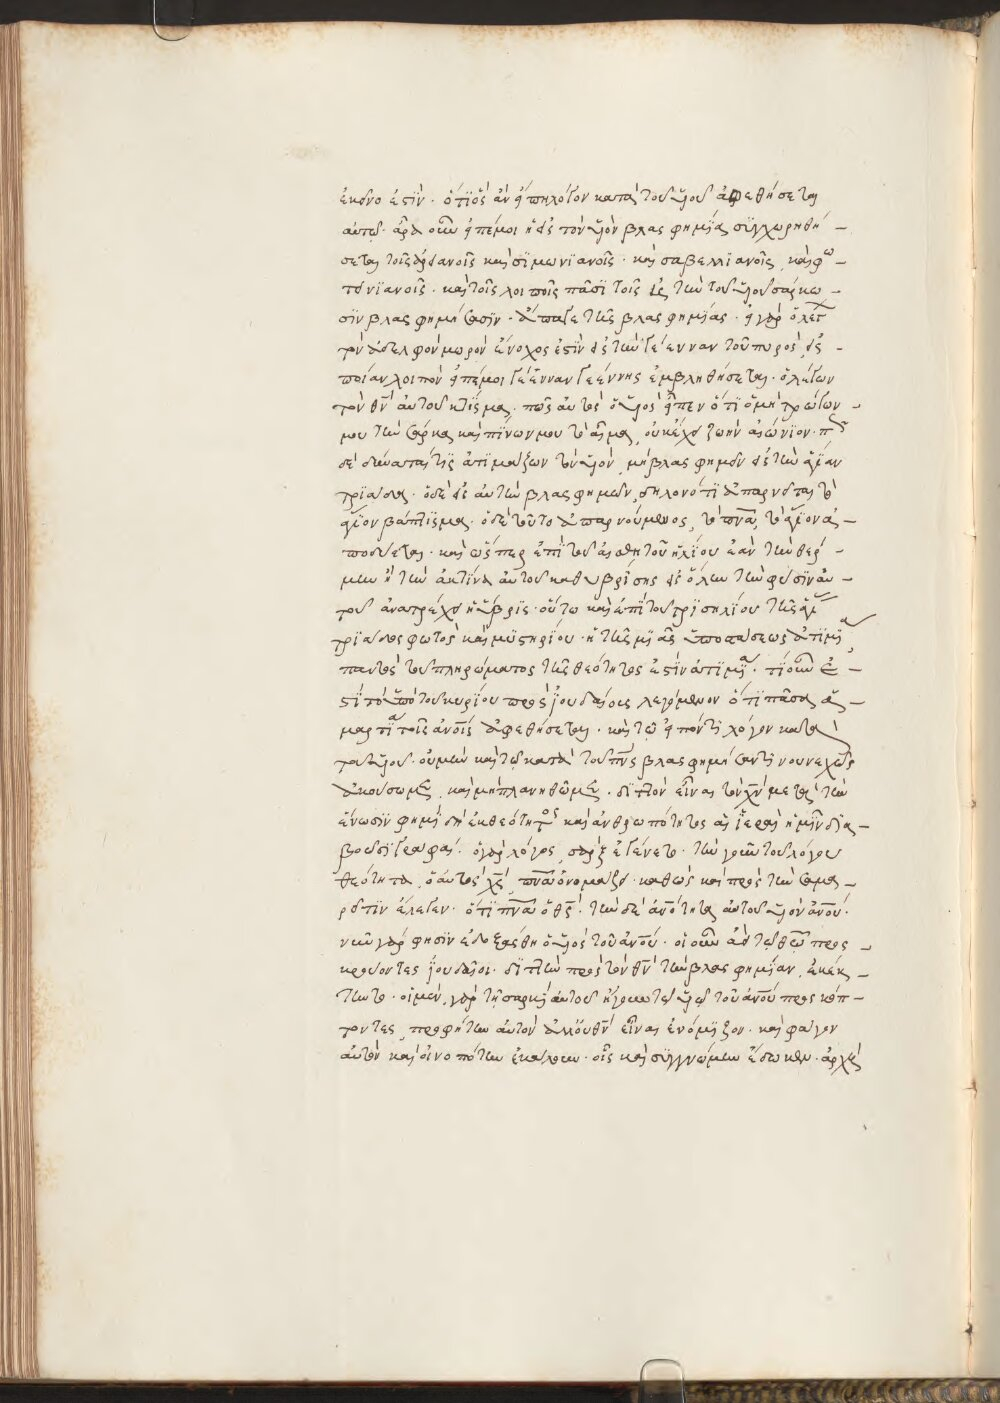 ἐκεῖνο ἐστὶν · ὅτι ὃς ἂν εἴπη λόγον κατὰ τοῦ υἱοῦ ἀφεθήσεται
αὐτῶ · ἆρα οὖν εἰπέ μοι ἡ εἰς τὸν υἱὸν βλασφημία συγχωρηθή –
σεται τοῖς ἀρειανοῖς καὶ σιμωνιανοῖς · καὶ σαβελλιανοῖς, καὶ φω –
τεινιανοῖς · καὶ τοῖς λοιποῖς πᾶσι τοῖς εἰς τὴν τοῦ υἱοῦ σάρκω –
σιν βλασφημήσασιν · ἄπαγε τῆς βλασφημίας · εἰ γὰρ ὁ λέγων
τὸν ἀδελφὸν μωρὸν ἔνοχος ἐστὶν εἰς τὴν γέενναν τοῦ πυρὸς, εἰς –
ποίαν λοιπὸν εἰπέ μοι γέενναν γεέννης ἐμβληθήσεται · ὁ λέγων
τὸν θν αὐτοῦ κτίσμα · πῶς αὐτὸς ὁ υἱὸς εἶπεν ὅτι ὁ μὴ τρώγων –
μου τὴν σάρκα καὶ πίνων μου τὸ αἷμα, οὐκ ἔχει ζωὴν αἰώνιον · πῶς
δὲ δύναταί τις ἀτιμάζων τὸν υἱὸν, μὴ βλασφημεῖν εἰς τὴν ἁγίαν
τριάδα · ὁ δὲ εἰς αὐτὴν βλασφημῶν, δηλονότι ἀπαρνεῖται τὸ
ἅγιον βάπτισμα · ὁ δὲ τοῦτο ἀπαρνούμενος, τὸ πνα, τὸ ἅγιον ἀ –
ποδύεται · καὶ ὥσπερ ἐπὶ τοῦ αἰσθητοῦ ἡλίου ἐὰν τὴν θέρ –
μην ἢ τὴν ἀκτῖνα αὐτοῦ καθυβρίσης εἰς ὅλην τὴν φύσιν αὐ –
τοῦ ἀνατρέχει ἡ ὕβρις · οὕτω καὶ ἐπὶ τοῦ τρισηλίου τῆς ἁγίας
τριάδος φωτὸς καὶ μυστηρίου · ἡ τῆς μιᾶς ὑποστάσεως ἀτιμία,
παντὸς τοῦ πληρώματος τῆς θεότητος ἐστὶν ἀτιμία · τί οὖν ἐ –
στὶ τὸ ὑπὸ τοῦ κυρίου πρὸς ἰουδαίους λεγόμενον ὅτι πᾶσα ἁ –
μαρτία τοῖς ἀνοις ἀφεθήσεται · καὶ τῶ εἰπόντι λόγον κατὰ
τοῦ υἱοῦ · οὐ μὴν καὶ τῶ κατὰ τοῦ πνς βλασφημήσαντι νουνεχῶς
ἀκούσωμεν, καὶ μὴ πλανηθῶμεν · διπλὸν εἶναι τὸν χν μετὰ τὴν
ἕνωσιν φημὶ δὴ ἐκ θεότητος καὶ ἀνθρωπότητος αἱ ἱεραὶ ἡμῖν δια –
βοῶσι γραφαί · ὁ γὰρ λόγος, σὰρξ ἐγένετο · τὴν γοῦν τοῦ λόγου
θεότητα, ὁ αὐτὸς χς, πνα ὀνομάζει · καθὼς καὶ πρὸς τὴν σαμα –
ρεῖτιν ἔλεγεν · ὅτι πνα ὁ θς · τὴν δὲ ἀνότητα αὐτοῦ υἱὸν ἀνου ·
νῦν γὰρ φησὶν ἐδοξάσθη ὁ υἱὸς τοῦ ἀνου · οἱ οὖν ἀεὶ τῶ θω προς –
κρούοντες ἰουδαῖοι · διπλῆν πρὸς τὸν θν τὴν βλασφημίαν, ἐκέκ –
τηντο · οἱ μὲν, γὰρ τῆ σαρκὶ αὐτοῦ ἤγουν τῶ υἱῶ τοῦ ἀνου προσκόπ –
τοντες, προφήτην αὐτὸν ἀλλ' οὐ θν εἶναι ἐνόμιζον · καὶ φάγον
αὐτὸν καὶ οἰνοπότην ἐκάλουν · οἷς καὶ συγγνώμην ἔδωκεν · ἀρχὴ